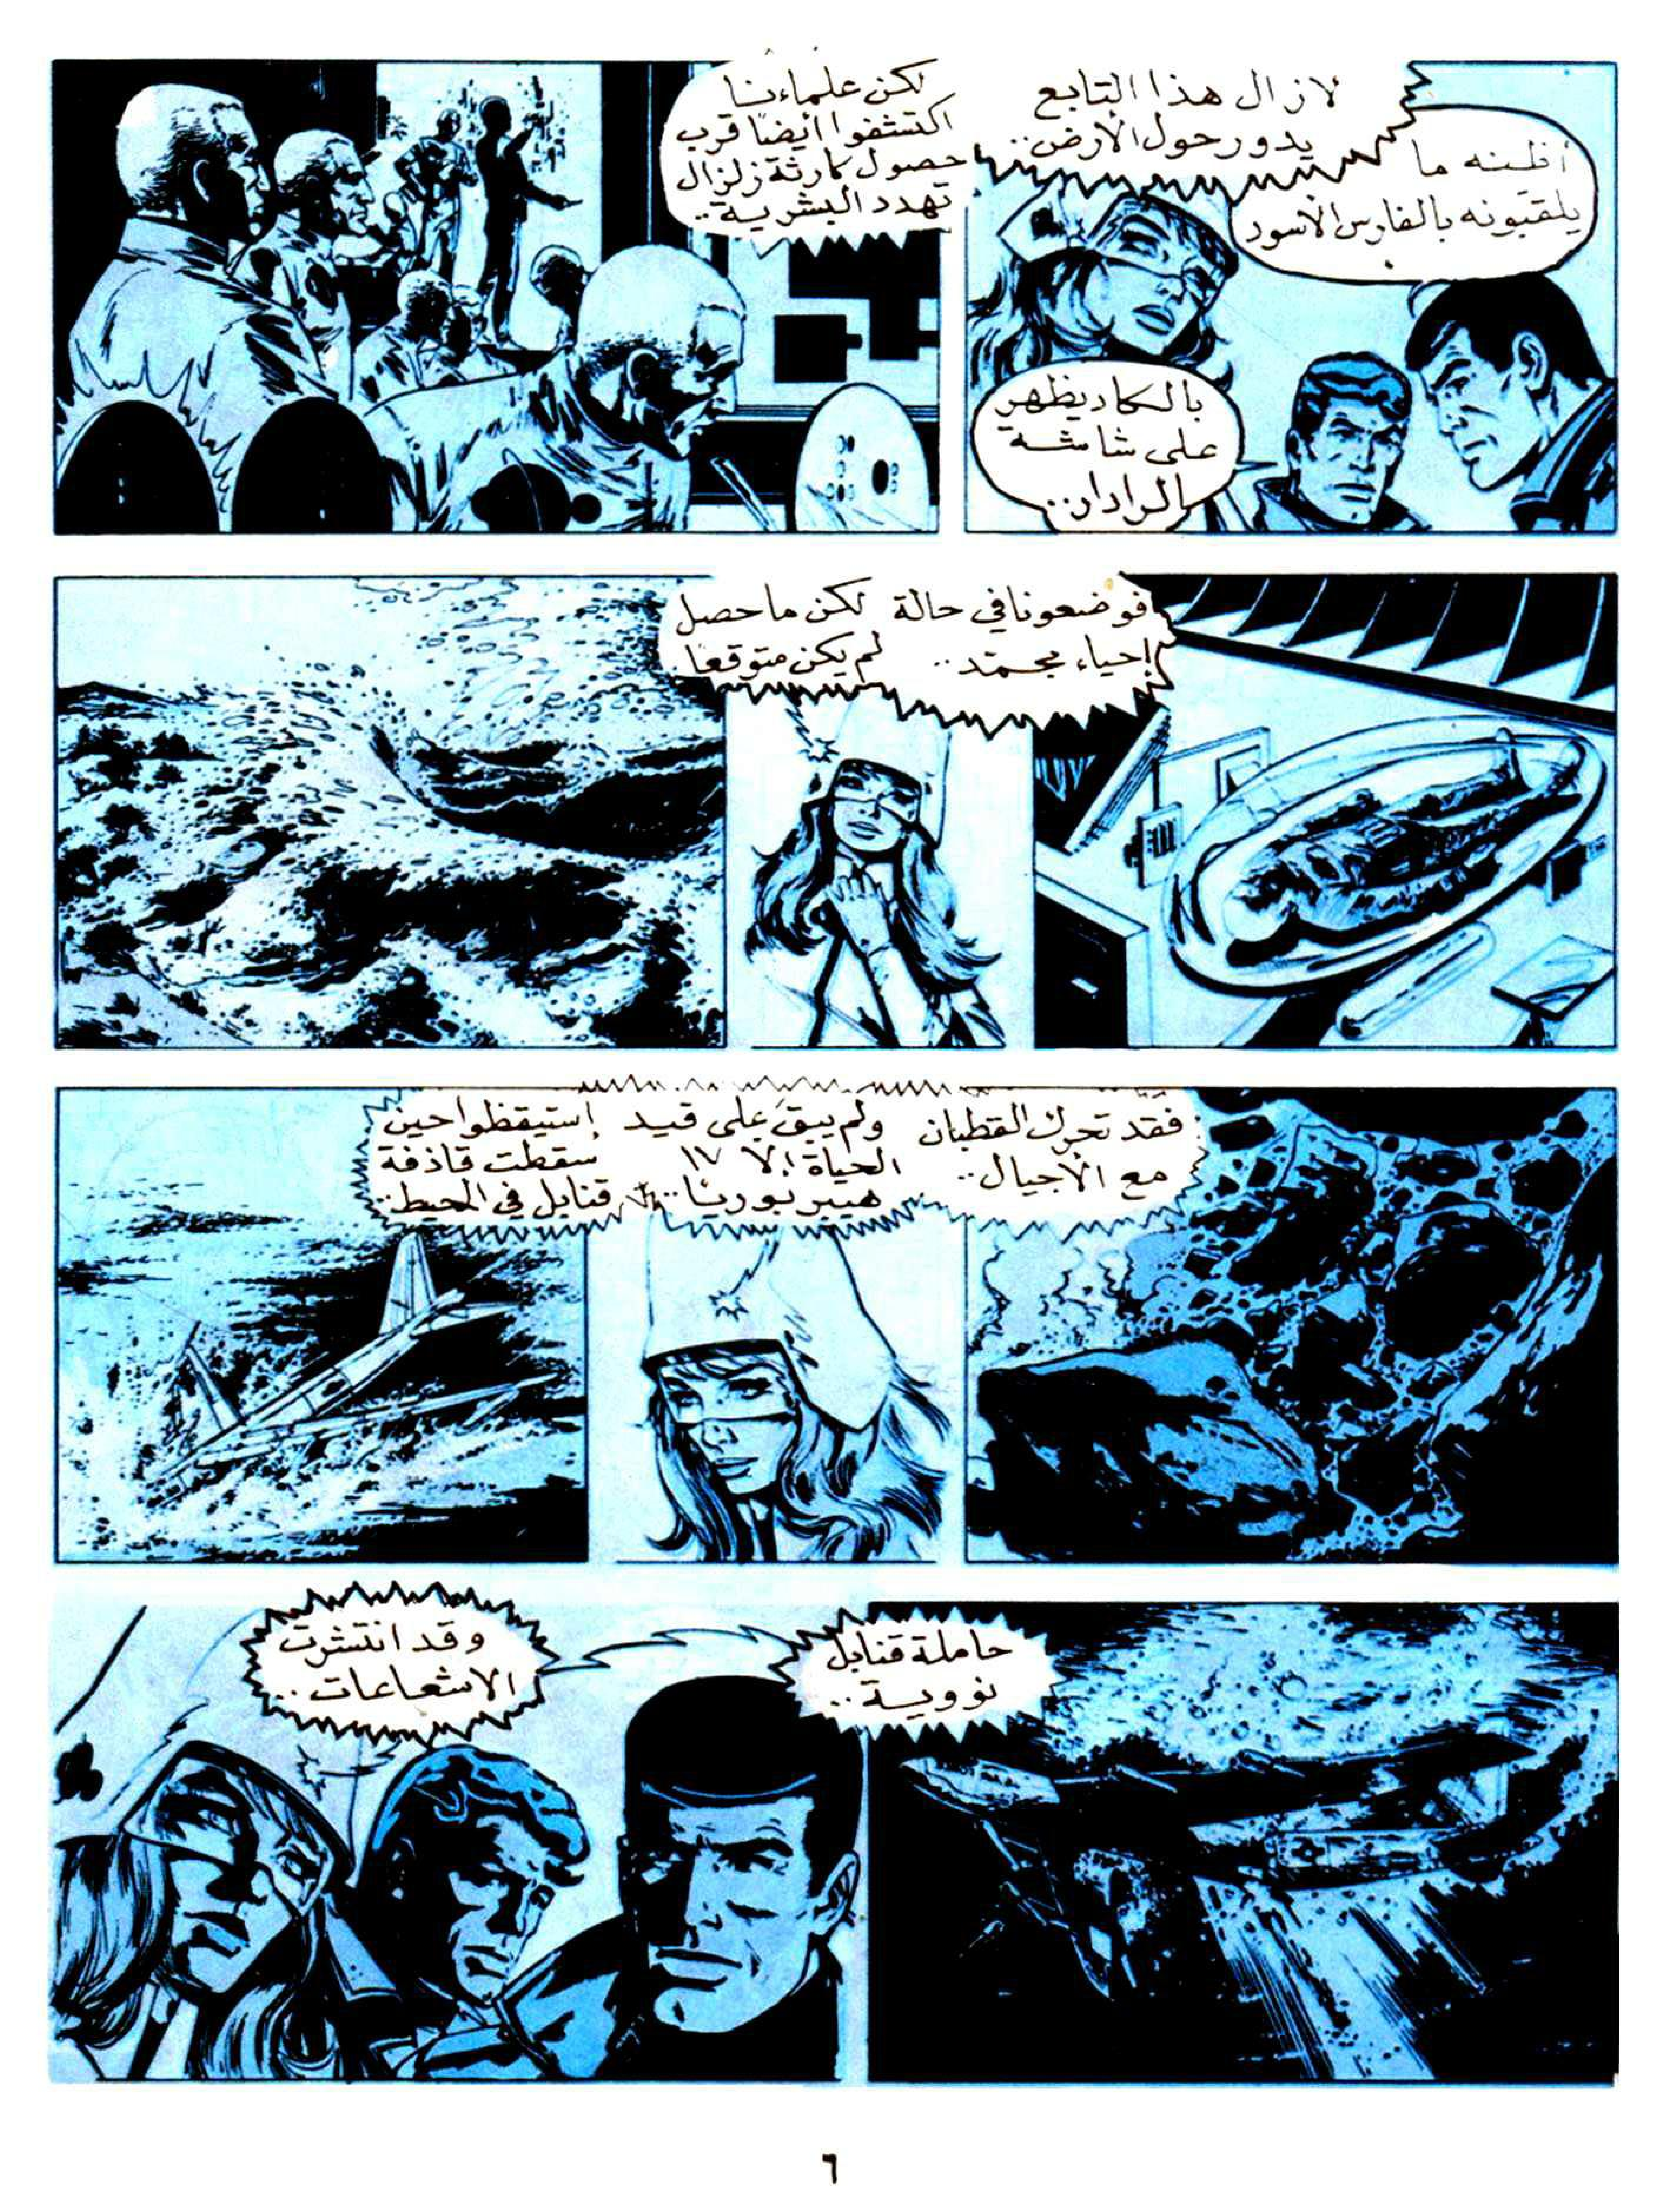 لازال هذا التابع
يدور حول الأرض..
أظنه ما
يلقبونه بالفارس الأسود
بالكاد يظهر
على شاشة
الرادار..
لكن علماءنا
اكتشفوا أيضًا قرب
حصول كارثة زلزال
تهدد البشرية..
فوضعونا في حالة
إحياء مجمّد..
لكن ما حصل
لم يكن متوقعًا
فقد تحرك القطبان
مع الأجيال..
ولم يبقَ على قيد
الحياة إلا ١٧
هيبربوريًا..
إستيقظوا حين
سقطت قاذفة
قنابل في المحيط..
حاملة قنابل
نووية..
وقد انتشرت
الاشعاعات..
٦